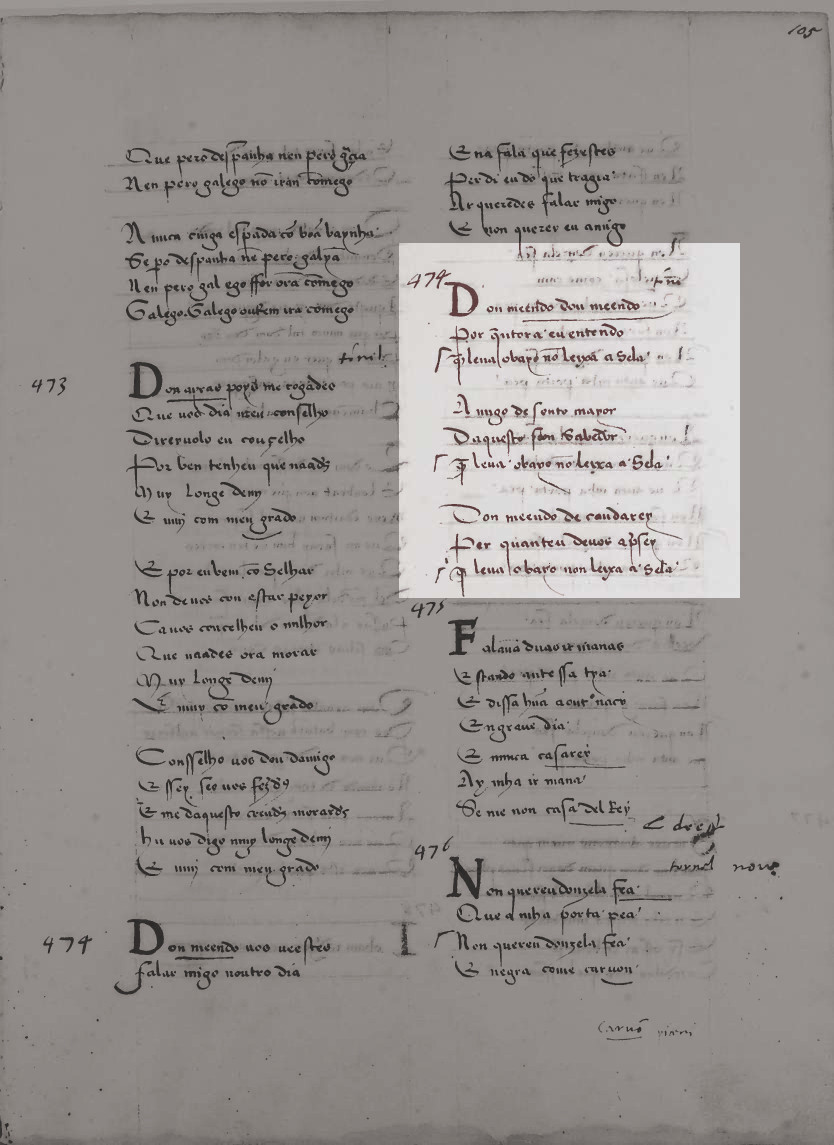 105
Que pero despanha nen pero gcia
Nen pero galego nō iran comego
A nuca cinga espada cō boā baynha
Se po despanha nē pero galyza
Nen pero gal ego ffor ora comego
Galego. Galego outrem ira comego
tornel
473
Don ayras poys me rogades
Que vos dia meu conselho
Direyuolo eu conçelho
Por ben tenheu que uaades
Muy longe demj
E muj com meu grado
E por eu bem cōselhar
Non deuos con estar peyor
Ca uos concelheu o milhor
Que uaades ora morar
Muy longe demj
E muy co meu grado
Consselho uos dou damigo
E ssey seo uos fezds
E me daquesto creuds morards
hu uos digo muy longe demj
E muj com meu grado
474
Don meendo uos ueestes
falar migo noutro dia
E na fala que fezestes
Perdi eu do que tragia
Ar queredes falar migo
E non querer eu amigo
474
Don meendo don meendo
Por quitora eu entendo
q̄ leua obayo nō leyxa a sela
Amigo de souto mayor
Daquesto son sabedor
q̄ leua obayo nō leixa a Sela
Don meendo de candarey
Per quanteu deuos apsey
q̄ leua obayo non leixa a sela
475
Falauā duas irmanas
Estando ante ssa tya
E dissa hūa aoutra
E nuuca casarey
Ay mha irmana
Se me non casa del Rey
476
tornel
Non quereu donzela fea
Que a mha porta pea
Non quereu donzela fea
E negra come caruon
Caruō